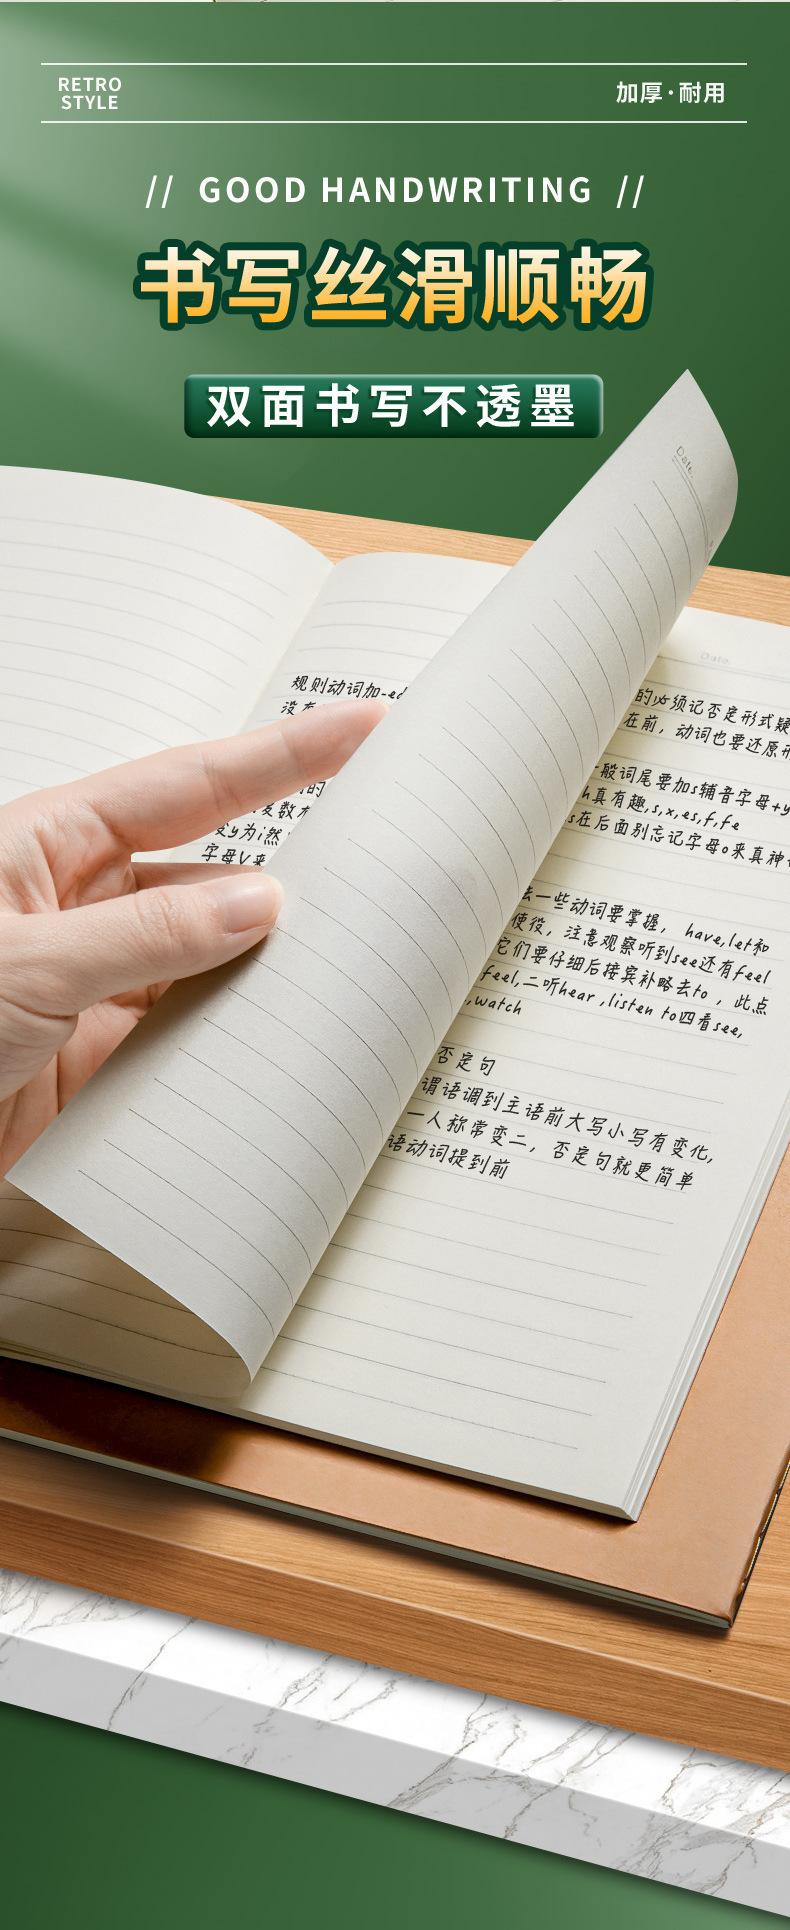 RETRO
STYLE
加厚·耐用
// GOOD HANDWRITING //
书写丝滑顺畅
双面书写不透墨
Date.
Date.
规则动词加-ed
没有
的
数
变y为i然
字母V来
的必须记否定形式疑
在前，动词也要还原形
一般词尾要加s辅音字母+y
h真有趣,s,x,es,f,fe
s在后面别忘记字母o来真神
去一些动词要掌握，have,let和
使役，注意观察听到see还有feel
它们要仔细后接宾补略去to，此点
feel,二听hear,listen to四看see,
,watch
否定句
谓语调到主语前大写小写有变化,
一人称常变二，否定句就更简单
语动词提到前